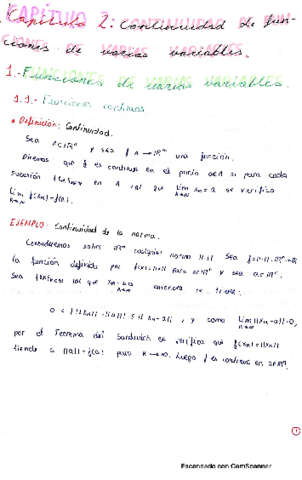 Capítulo 2: Continuidad de fun-
ciones de varias variables.
1.- Funciones de varias variables.
1.1.- Funciones continuas
Definición: Continuidad.
Sea A⊂ℝⁿ y sea f: A→ℝᵐ una función.
Diremos que f es continua en el punto a∈A si para cada
sucesión en A tal que lim xₙ = a se verifica
lim f(xₙ)=f(a).
EJEMPLO: Continuidad de la norma.
Consideremos sobre ℝⁿ cualquier norma ‖·‖. Sea
la función definida por f(x)=‖x‖ para x∈ℝⁿ y sea a∈ℝⁿ.
Sea tal que entonces se tiene:
0 ≤ |‖xₙ‖-‖a‖| ≤ ‖xₙ-a‖, y como lim ‖xₙ-a‖=0,
por el Teorema del Sandwich se verifica que f(xₙ)=‖xₙ‖
tiende a ‖a‖=f(a) para n→∞. Luego f es continua en a∈ℝⁿ.
1
Escaneado con CamScanner